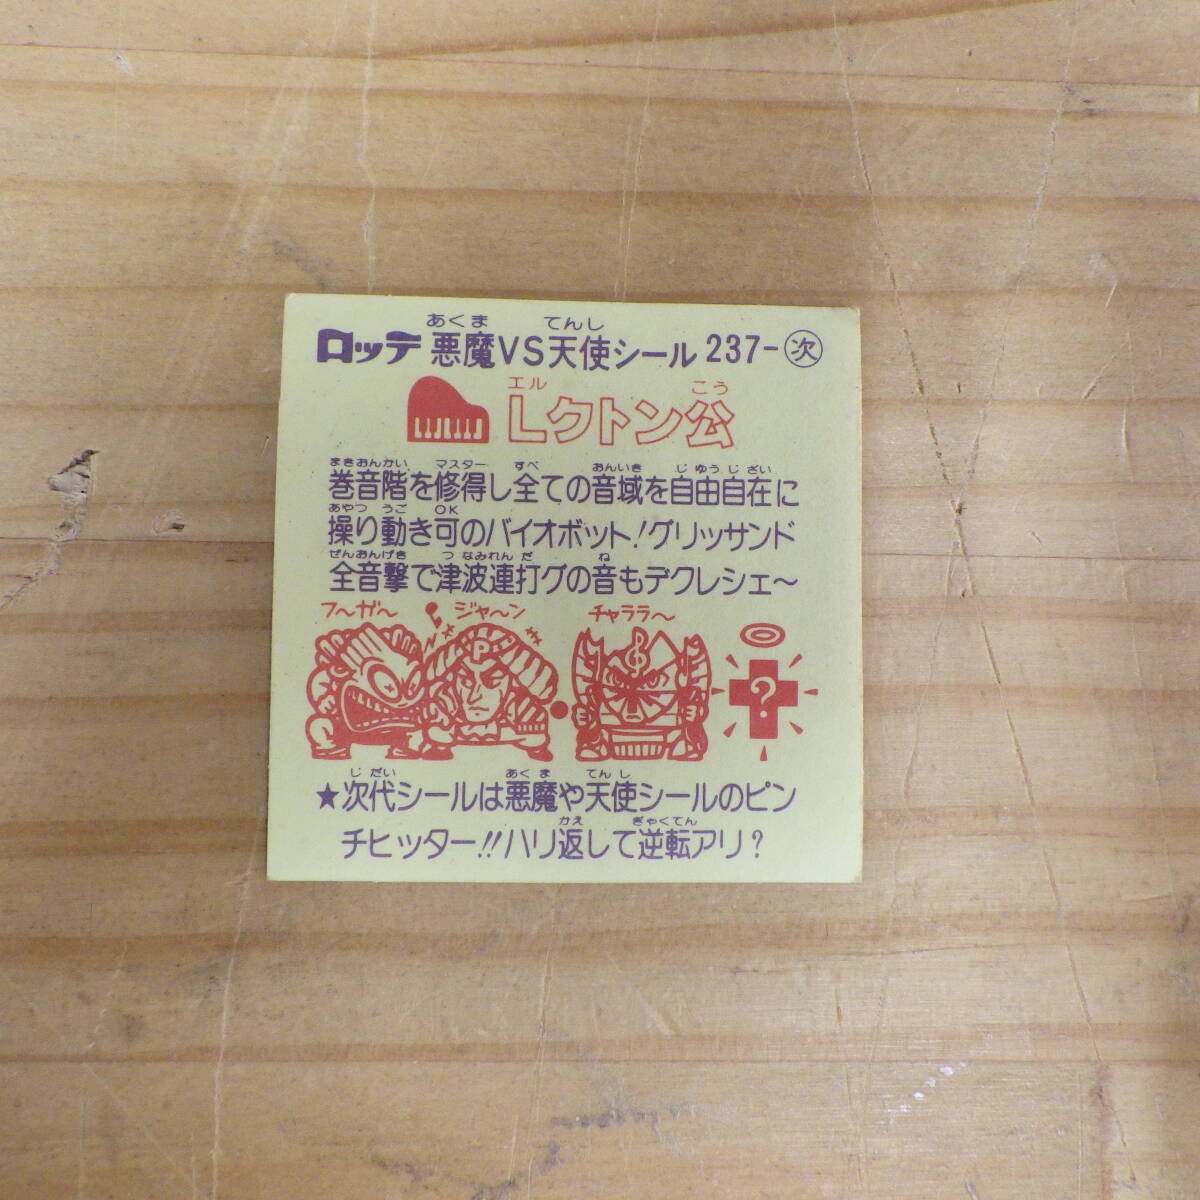 あくま てんし
ロッテ 悪魔VS天使シール 237-次
エル こう
Lクトン公
まきおんかい マスター すべ おんいき じゆうじざい
巻音階を修得し全ての音域を自由自在に
あやつ うご OK
操り動き可のバイオボット!グリッサンド
ぜんおんげき つなみれんだ ね
全音撃で津波連打グの音もデクレシェ〜
フ〜ガ〜 ジャ〜ン チャララ〜
P
?
じだい あくま てんし
★次代シールは悪魔や天使シールのピン
かえ ぎゃくてん
チヒッター!!ハリ返して逆転アリ?